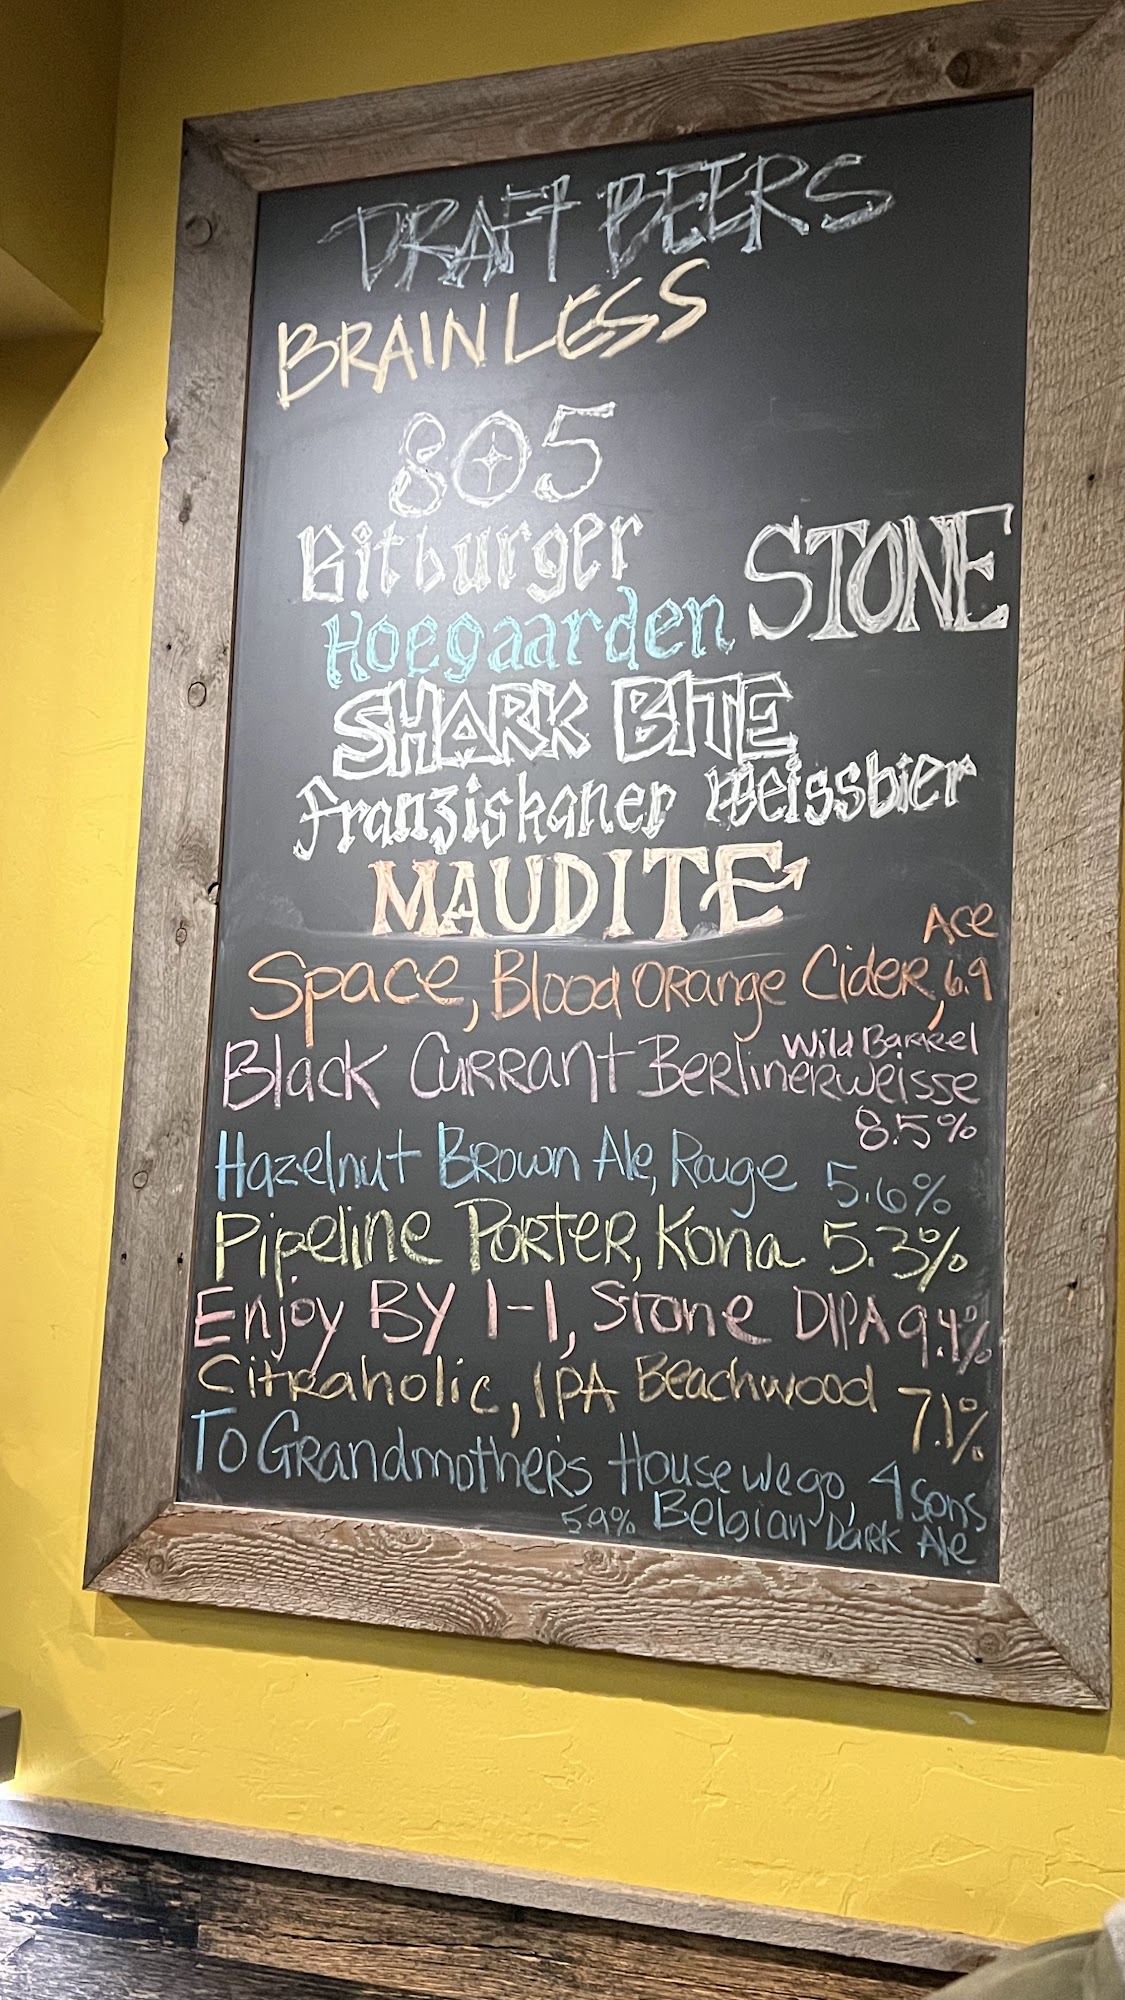 DRAFT BEERS
BRAINLESS
805
Bitburger
STONE
Hoegaarden
SHARK BITE
Franziskaner Weissbier
MAUDITE
Ace
Space, Blood Orange Cider, 6.9
Wild Barrel
Black Currant Berlinerweisse
8.5%
Hazelnut Brown Ale, Rouge 5.6%
Pipeline Porter, Kona 5.3%
Enjoy By 1-1, Stone DIPA 9.4%
Citraholic, IPA Beachwood 7.1%
To Grandmother's House we go, 4 sons
5.9% Belgian Dark Ale